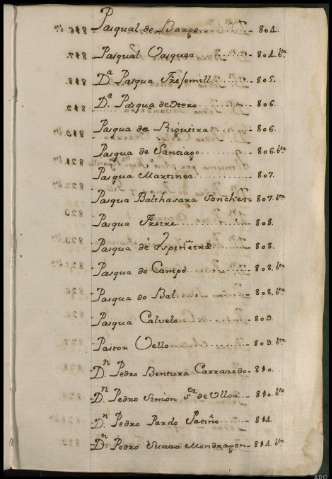 Pasqual de Barze 804.
Pasqual Vasques 804. bto
D.a Pasqua Fresomill 805.
D.a Pasqua de Otero 806.
Pasqua de Rigueira 806.
Pasqua de Santiago 806. bto
Pasqua Martinez 807.
Pasqua Balthasara Sonchez 807. bto
Pasqua Freire 808.
Pasqua de Espiñeira 808.
Pasqua do Campo 808. bto
Pasqua do Bal 808. bto
Pasqua Calvelo 809.
Pastor Vello 809. bto
D.n Pedro Bentura Carranedo 810.
D.n Pedro Simon de Ulloa 810. bto
D.n Pedro Pardo Patiño 811.
D.n Pedro Mondragon 811. bto